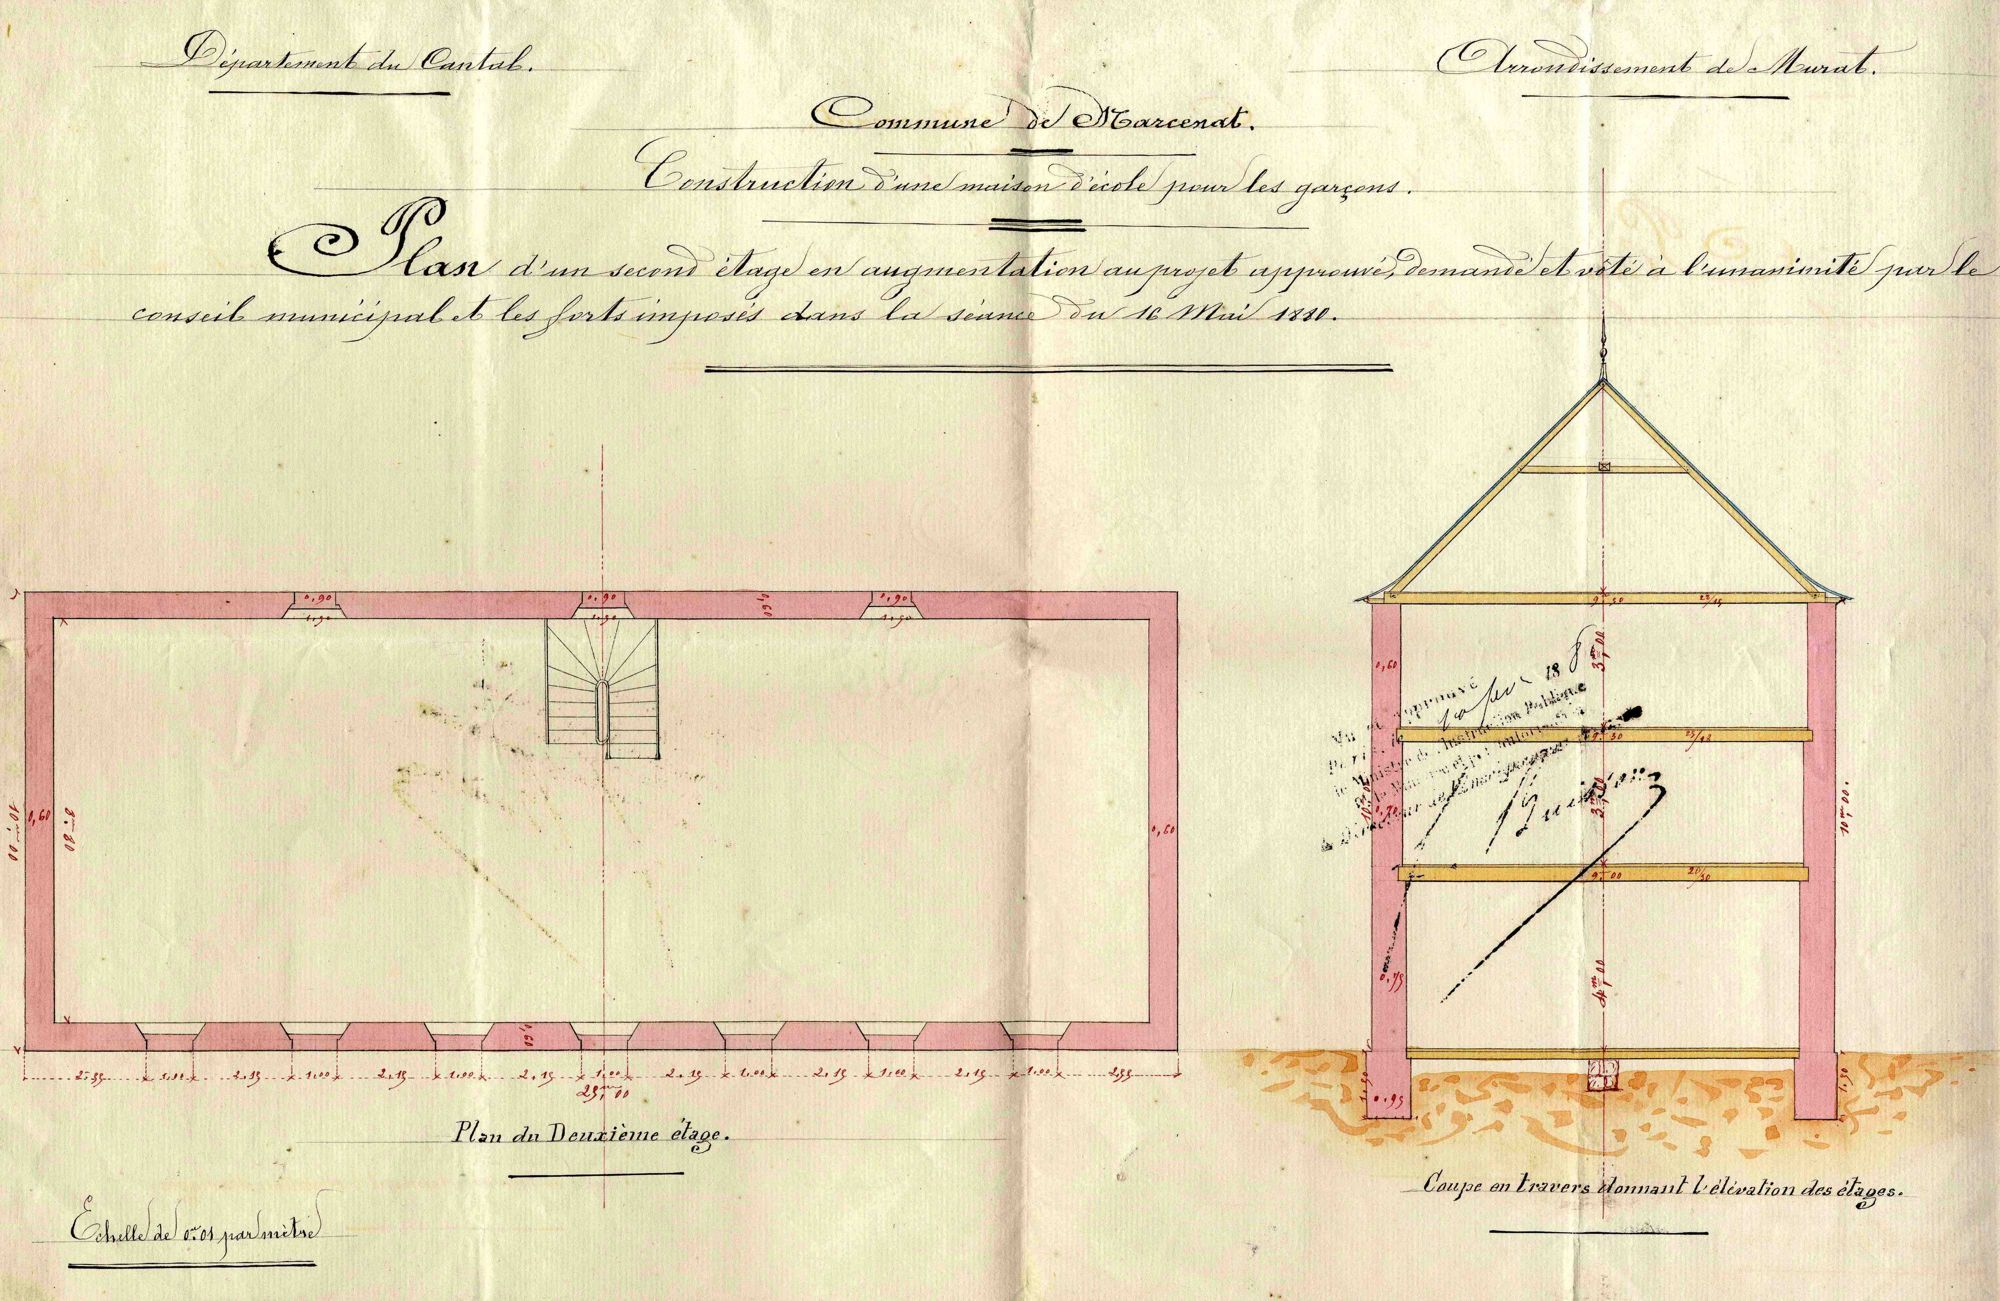 Département du Cantal.
Arrondissement de Murat.
Commune de Marcenat.
Construction d'une maison d'école pour les garçons.
Plan d'un second étage en augmentation au projet approuvé, demandé et voté à l'unanimité par le
conseil municipal et les forts imposés dans la séance du 16 Mai 1880.
0,90 0,90 0,90
1,30 1,30 1,30
0,60
10m,00 0,60 8m,80 0,60
0,60
2,55 1,00 2,15 1,00 2,15 1,00 2,15 1,00 2,15 1,00 2,15 1,00 2,15 1,00 2,55
25m,00
Plan du Deuxième étage.
Echelle de 0m,01 par mètre
3m,00
0,60
Vu et Approuvé
Paris, le
le Ministre de l'Instruction Publique
Buisson
3m,00
10m,00 0,70 10m,00.
9,00 20/30
4m,00
0,75
0,95
Coupe en travers donnant l'élévation des étages.